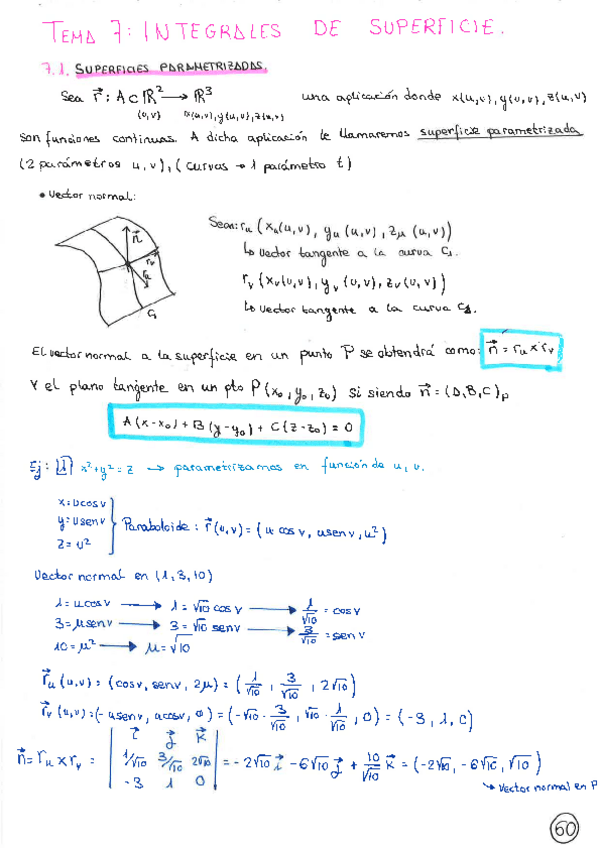 TEMA 7: INTEGRALES DE SUPERFICIE.
7.1. SUPERFICIES PARAMETRIZADAS.
Sea r⃗ : A ⊂ ℝ² → ℝ³ una aplicación donde x(u,v), y(u,v), z(u,v)
(u,v) x(u,v), y(u,v), z(u,v)
son funciones continuas. A dicha aplicación le llamaremos superficie parametrizada
(2 parámetros u, v), (curvas → 1 parámetro t)
• Vector normal:
n⃗
r_v
r_u
C₁
Sean: r_u (x_u(u,v), y_u (u,v), z_u (u,v))
↳ Vector tangente a la curva C₁.
r_v (x_v(u,v), y_v (u,v), z_v (u,v))
↳ Vector tangente a la curva C₂.
El vector normal a la superficie en un punto P se obtendrá como: n⃗ = r_u x r_v
Y el plano tangente en un pto P(x₀, y₀, z₀) si siendo n⃗ = (A,B,C)_P
A(x-x₀) + B(y-y₀) + C(z-z₀) = 0
Ej: 1 x²+y² = z → parametrizamos en función de u, v.
x = u cos v
y = u sen v } Paraboloide: r⃗(u,v) = (u cos v, u sen v, u²)
z = u²
Vector normal en (1, 3, 10)
1 = u cos v → 1 = √10 cos v → 1/√10 = cos v
3 = u sen v → 3 = √10 sen v → 3/√10 = sen v
10 = u² → u = √10
r⃗_u (u,v) = (cos v, sen v, 2u) = (1/√10, 3/√10, 2√10)
r⃗_v (u,v) = (-u sen v, u cos v, 0) = (-√10 · 3/√10, √10 · 1/√10, 0) = (-3, 1, 0)
n⃗ = r_u x r_v = | i⃗ j⃗ k⃗ |
| 1/√10 3/√10 2√10 | = -2√10 i⃗ - 6√10 j⃗ + 10/√10 k⃗ = (-2√10, -6√10, √10)
| -3 1 0 |
↳ Vector normal en P
60